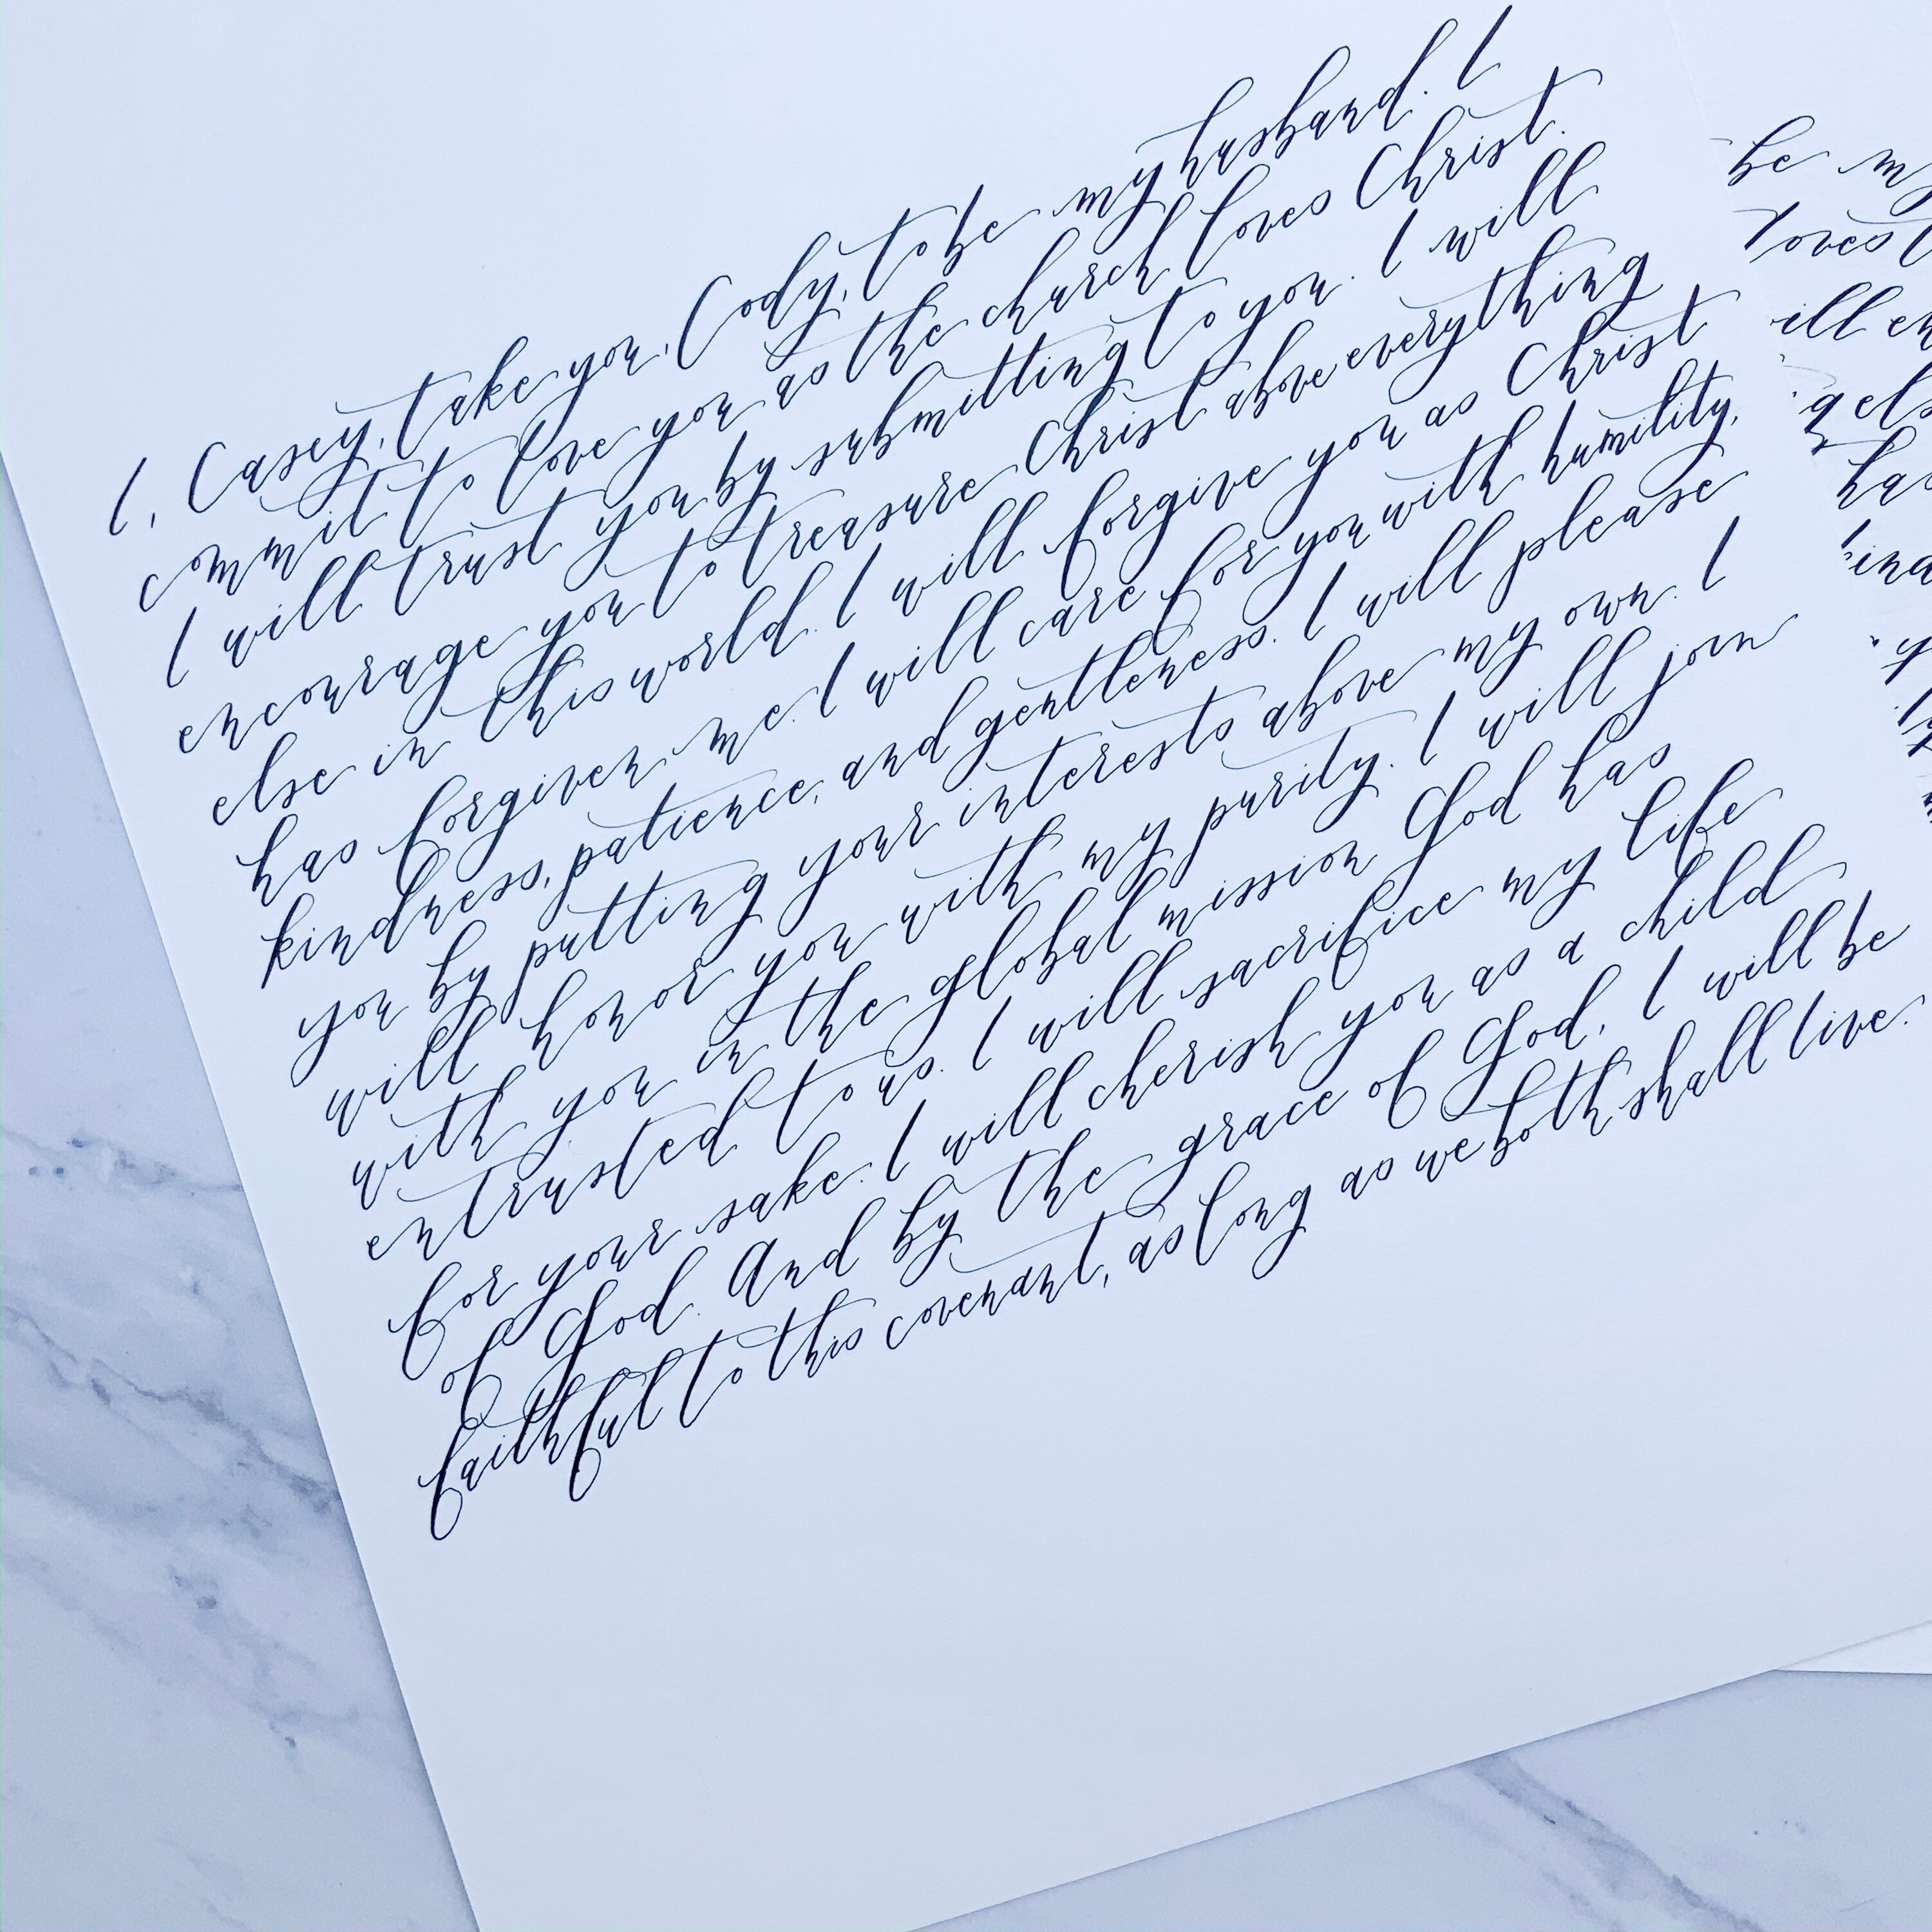 I, Casey, take you, Cody, to be my husband. I
commit to love you as the church loves Christ.
I will trust you by submitting to you. I will
encourage you to treasure Christ above everything
else in this world. I will forgive you as Christ
has forgiven me. I will care for you with humility,
kindness, patience, and gentleness. I will please
you by putting your interests above my own. I
will honor you with my purity. I will join
with you in the global mission God has
entrusted to us. I will sacrifice my life
for your sake. I will cherish you as a child
of God. And by the grace of God, I will be
faithful to this covenant, as long as we both shall live.
be my
loves